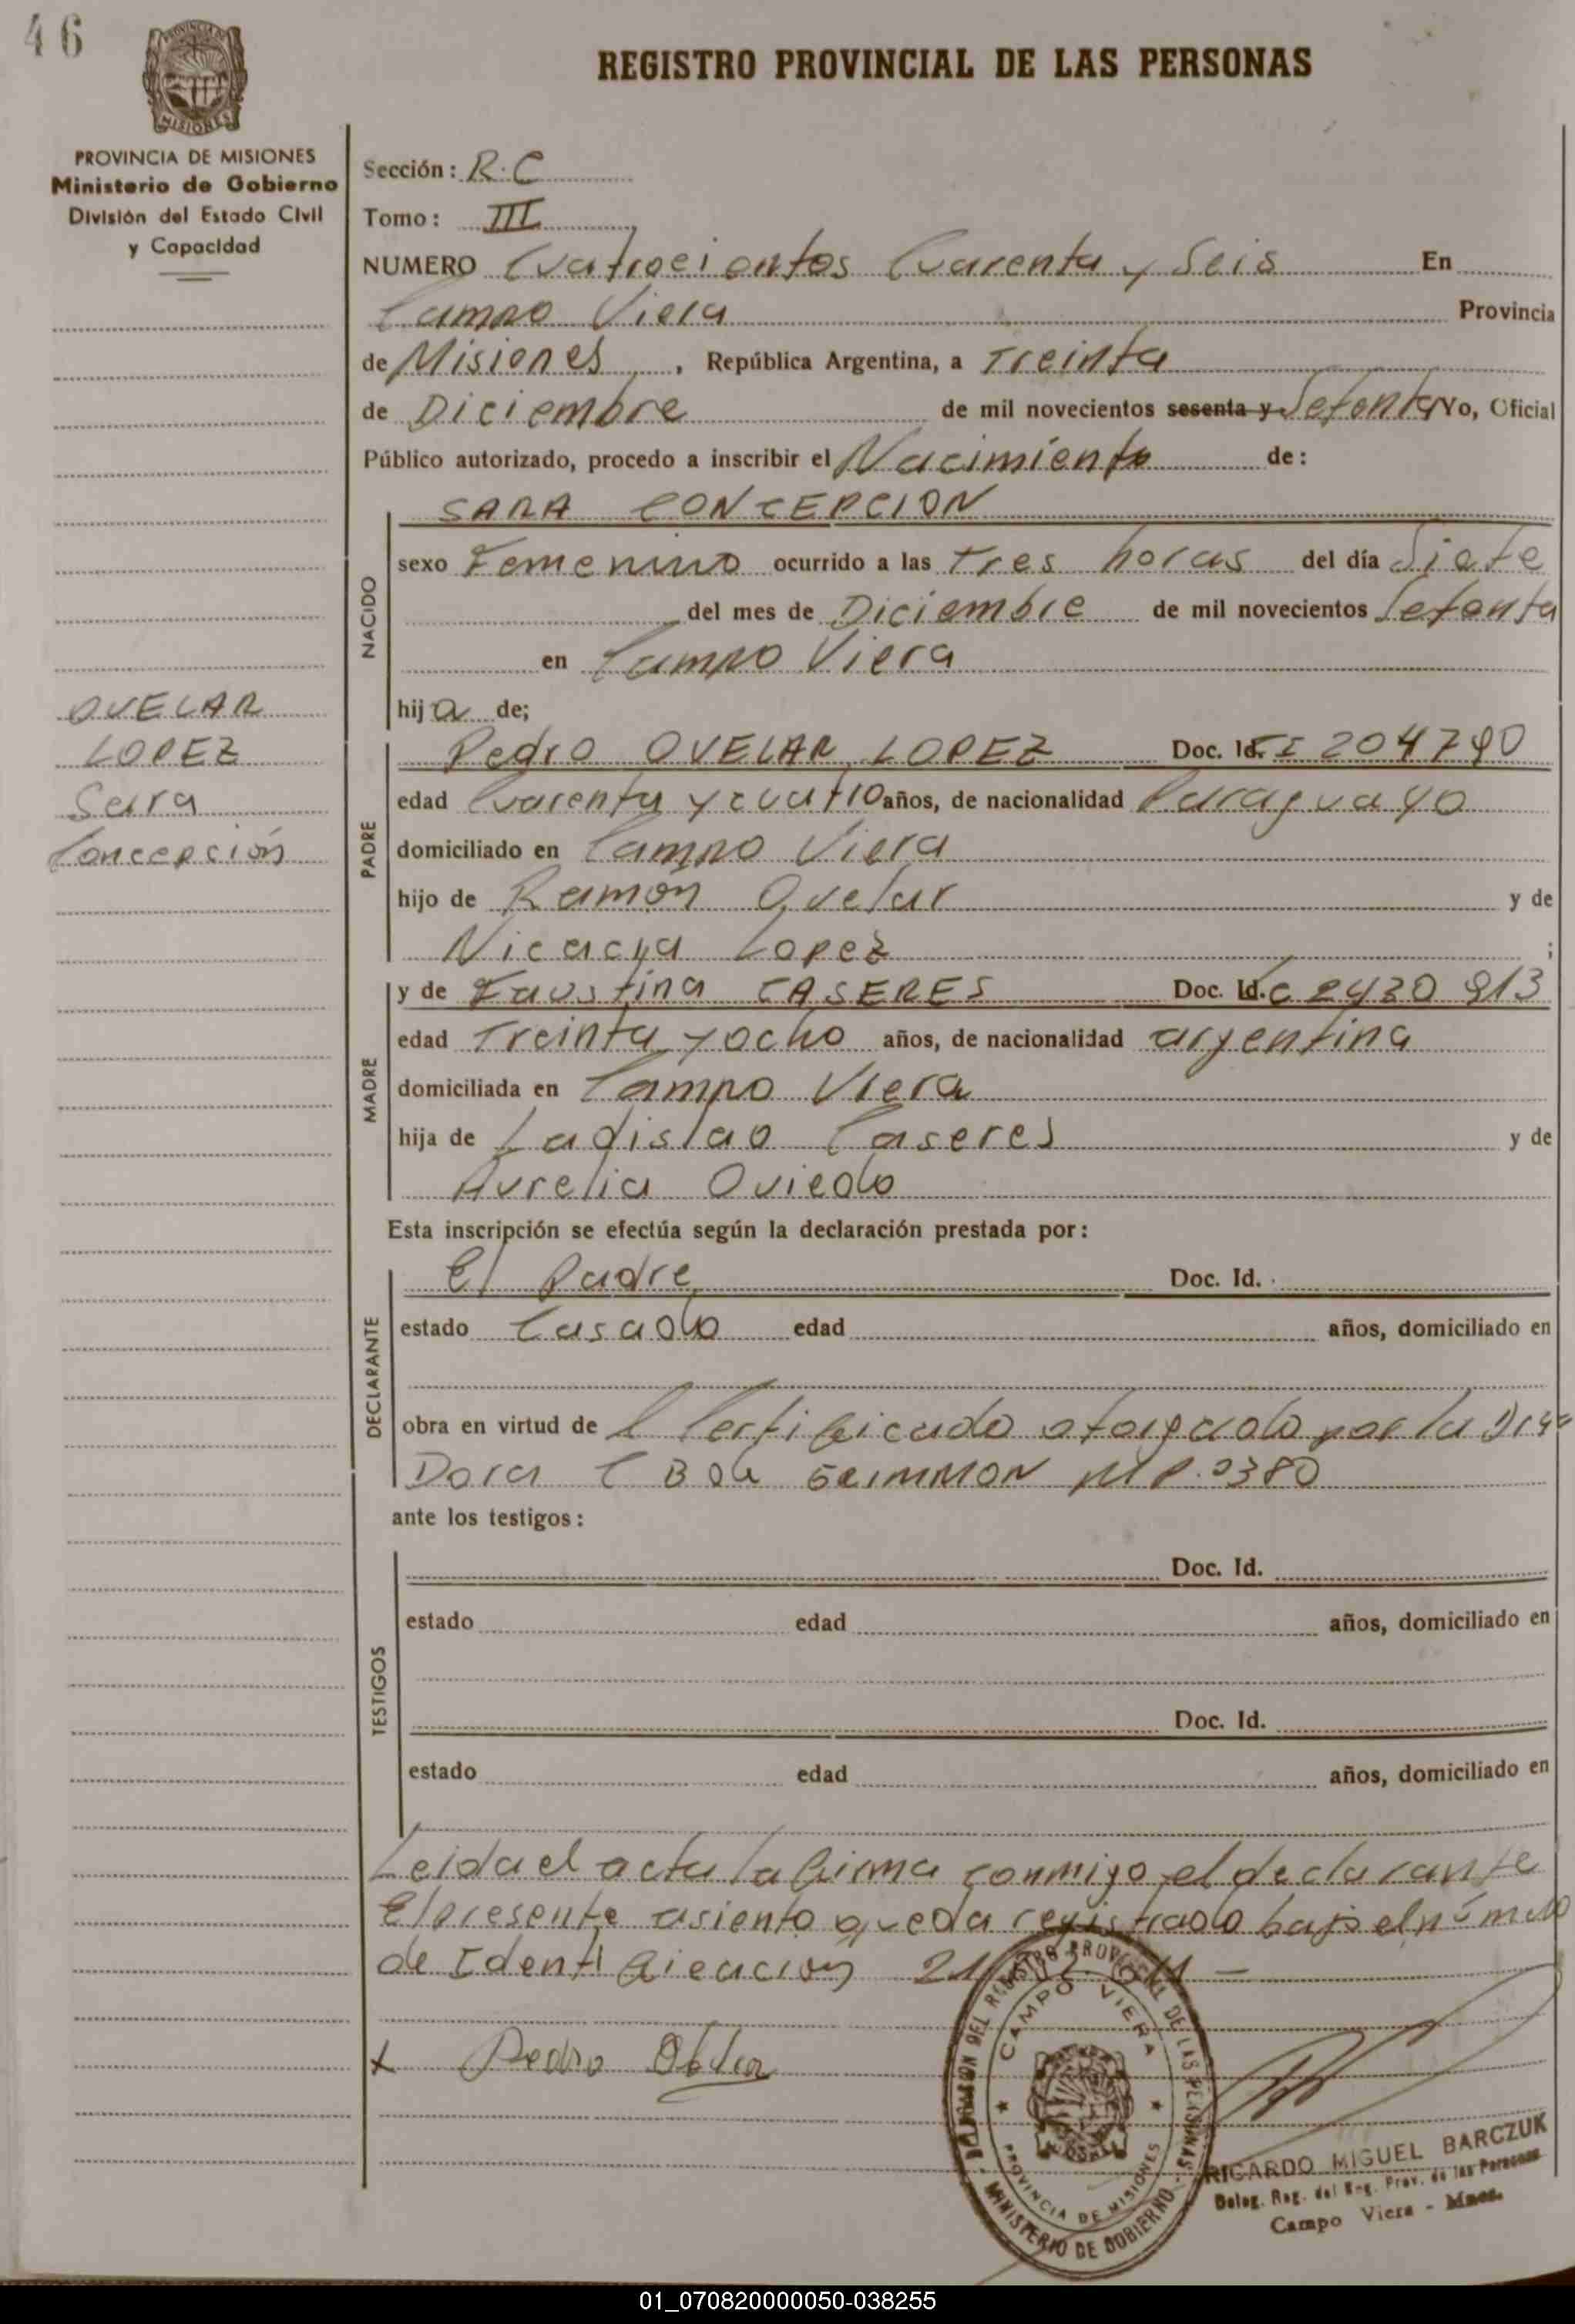 46
REGISTRO PROVINCIAL DE LAS PERSONAS
MISIONES
PROVINCIA DE MISIONES
Ministerio de Gobierno
División del Estado Civil
y Capacidad
Sección: R.C
Tomo: III
NUMERO Cuatrocientos Cuarenta y Seis En
Campo Viera Provincia
de Misiones, República Argentina, a Treinta
de Diciembre de mil novecientos sesenta y Setenta Yo, Oficial
Público autorizado, procedo a inscribir el Nacimiento de:
SARA CONCEPCION
NACIDO
sexo Femenino ocurrido a las Tres horas del día Siete
del mes de Diciembre de mil novecientos Setenta
en Campo Viera
hija de;
OVELAR
LOPEZ
Sara
Concepción
PADRE
Pedro OVELAR LOPEZ Doc. Id. CI 204790
edad Cuarenta y cuatro años, de nacionalidad Paraguayo
domiciliado en Campo Viera
hijo de Ramón Ovelar y de
Lopez ;
MADRE
y de Faustina CASERES Doc. Id. C 2430 913
edad Treinta y ocho años, de nacionalidad argentina
domiciliada en Campo Viera
hija de Ladislao Caseres y de
Aurelia Oviedo
Esta inscripción se efectúa según la declaración prestada por:
DECLARANTE
El Padre Doc. Id.
estado Casado edad años, domiciliado en
obra en virtud de l Certificado otorgado por la
Dora C B de GRIMMON M P. 0380
ante los testigos:
TESTIGOS
Doc. Id.
estado edad años, domiciliado en
Doc. Id.
estado edad años, domiciliado en
Leida el acta la firma conmigo el declarante
El presente asiento queda registrado bajo el número
de Identificación
x Pedro
DELEGACION DEL REGISTRO PROVINCIAL DE LAS PERSONAS - MINISTERIO DE GOBIERNO -
CAMPO VIERA
PROVINCIA DE MISIONES
RICARDO MIGUEL BARCZUK
Deleg. Reg. del Reg. Prov. de las Personas
Campo Viera - Mnes.
01_070820000050-038255